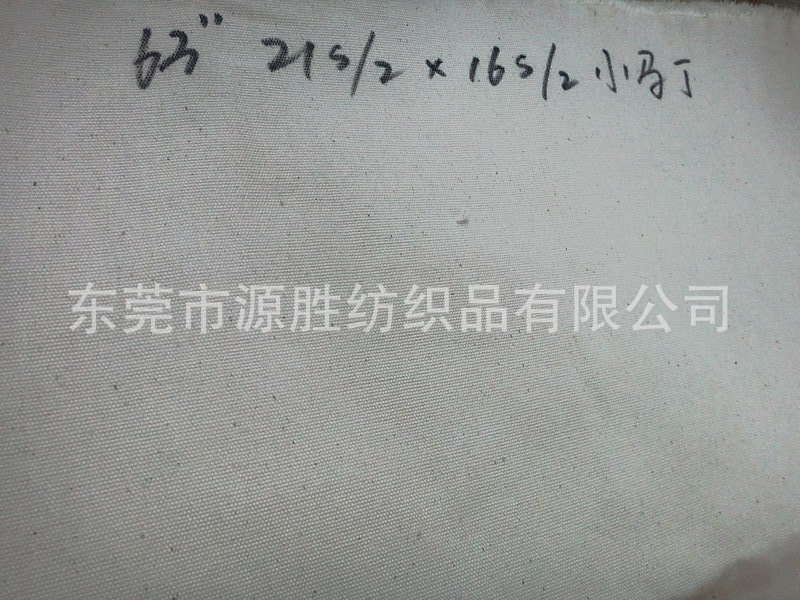 63" 21s/2 × 16s/2 小马丁
东莞市源胜纺织品有限公司